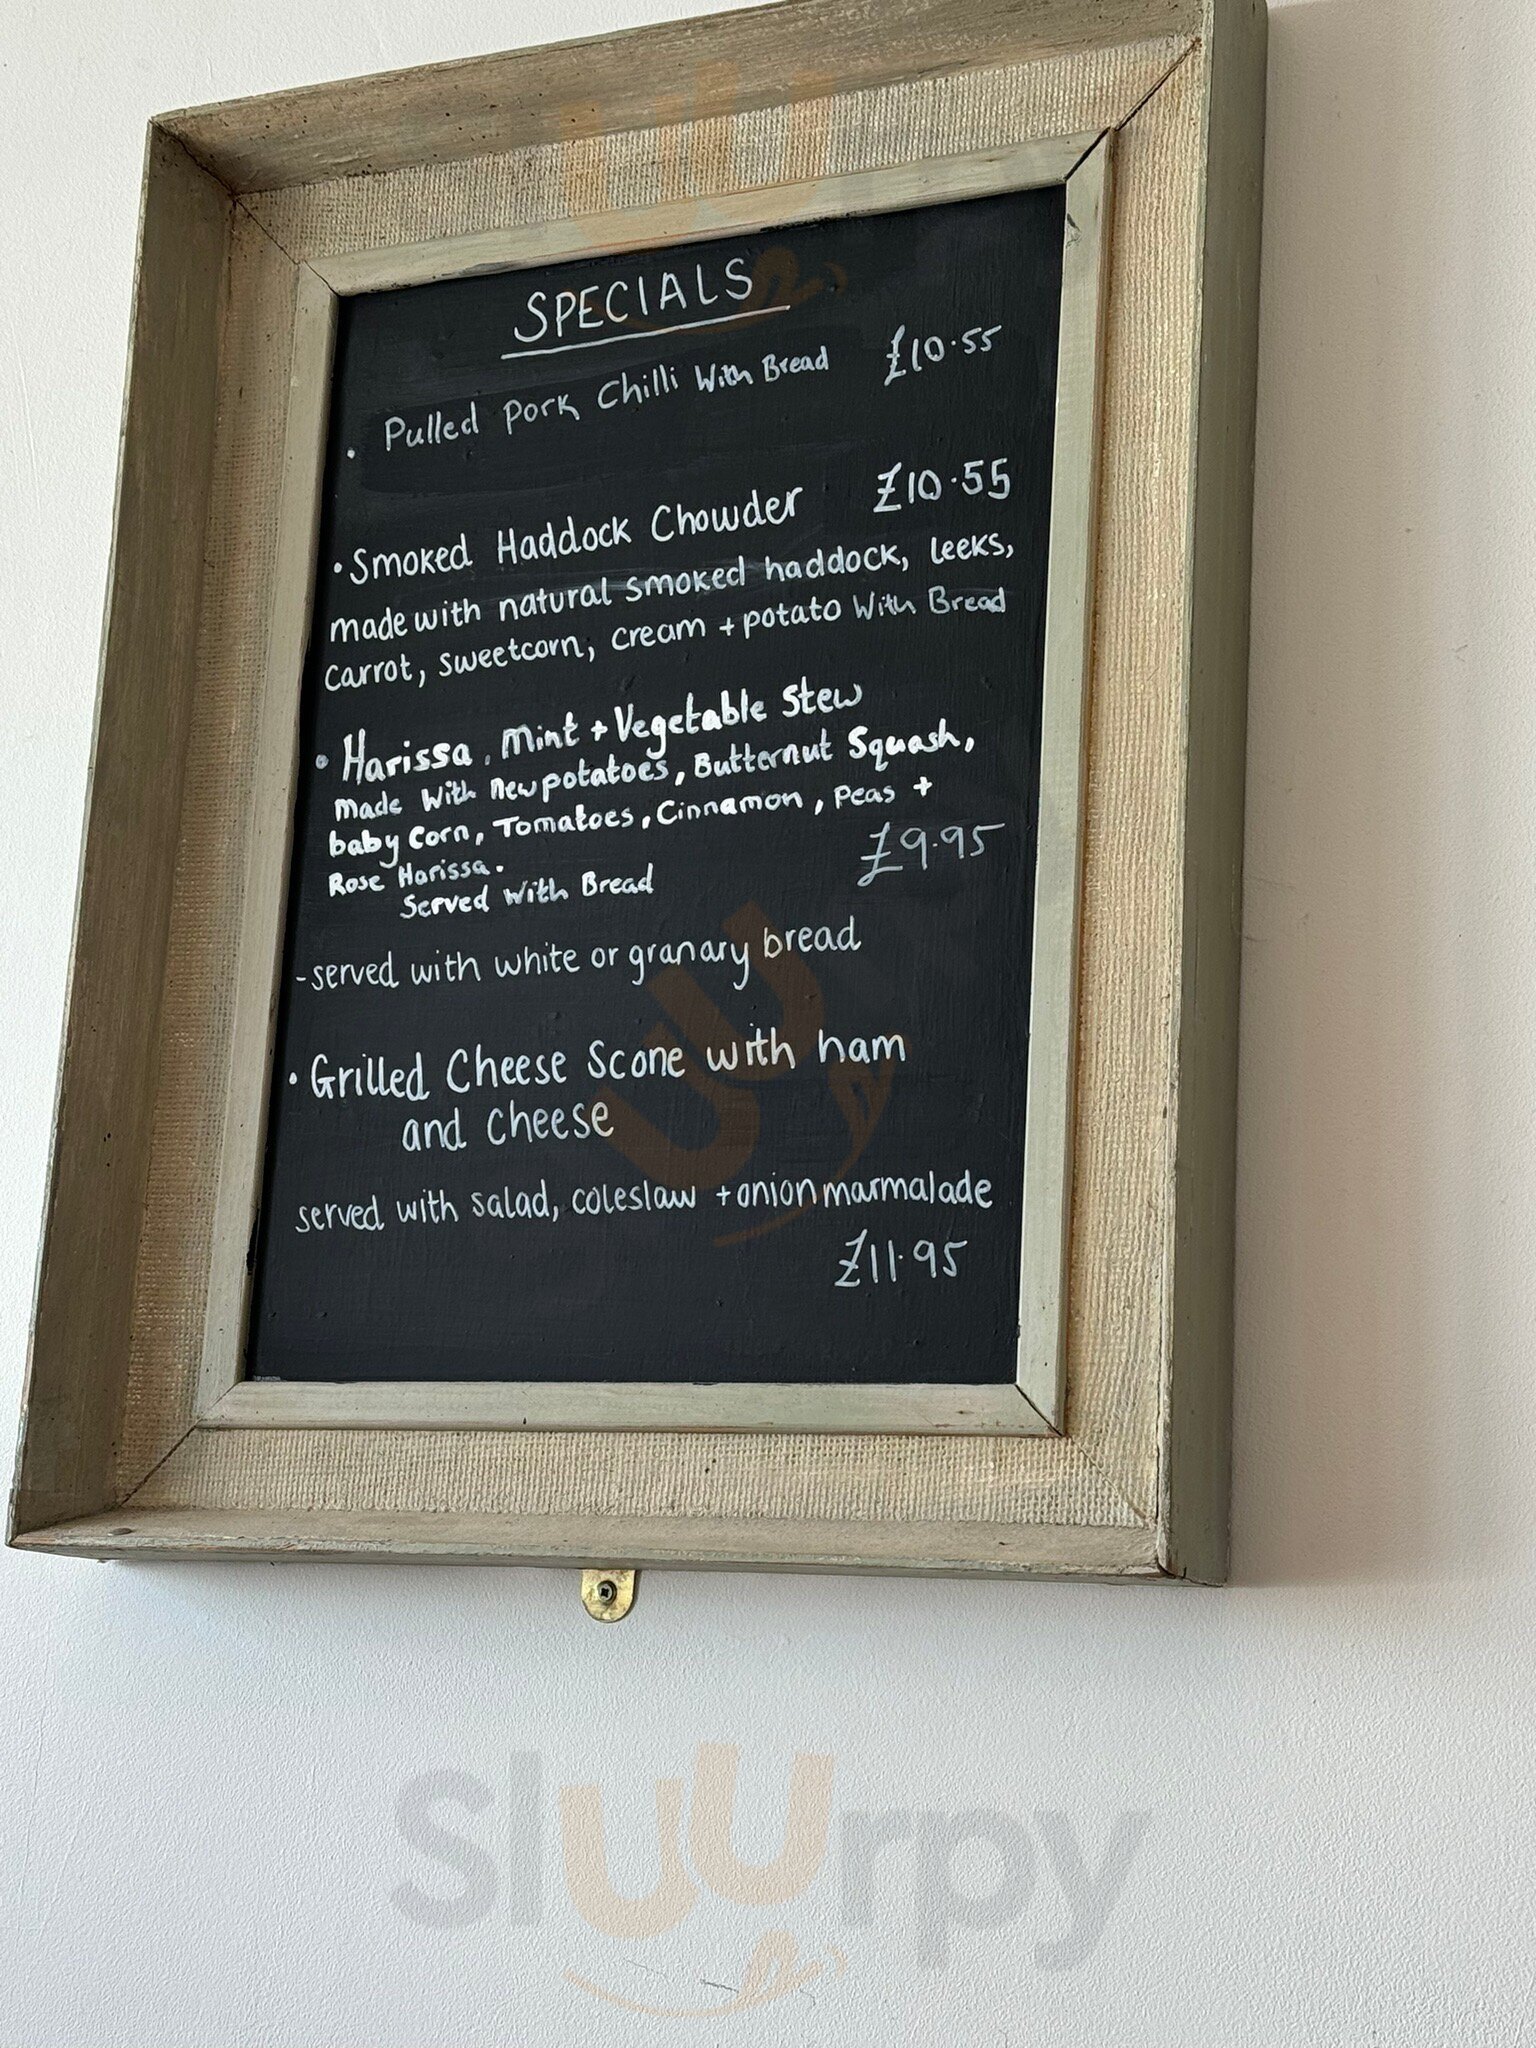 SPECIALS
• Pulled Pork Chilli With Bread £10.55
• Smoked Haddock Chowder £10.55
made with natural smoked haddock, leeks,
carrot, sweetcorn, cream + potato With Bread
• Harissa, Mint + Vegetable Stew
Made With new potatoes, Butternut Squash,
baby Corn, Tomatoes, Cinnamon, Peas +
Rose Harissa. £9.95
Served With Bread
- served with white or granary bread
• Grilled Cheese Scone with ham
and cheese
served with salad, coleslaw + onion marmalade
£11.95
Sluurpy